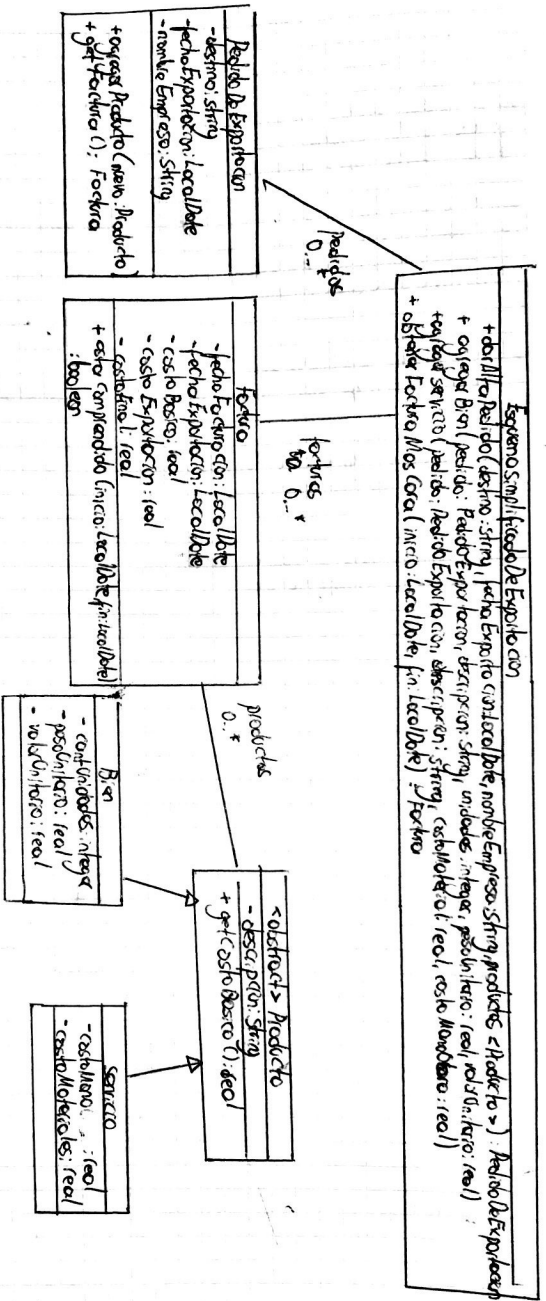 EsquemaSimplificadoDeExportacion
+ darAltaPedido(destino: string, fechaExportacion:LocalDate, nombreEmpresa: string, productos <Producto>): PedidoDeExportacion
+ agregarBien (pedido: PedidoExportacion, descripcion: string, unidades: integer, pesoUnitario: real, valorUnitario: real) :
+ agregarservicio (pedido: PedidoExportacion, descripcion: string, costoMaterial: real, costoManoObra: real)
+ obtenerFacturaMasCara (inicio: LocalDate, fin: LocalDate): Factura
Pedidos
0...*
facturas
0...*
PedidoDeExportacion
- destino: string
- fechaExportacion: LocalDate
- nombreEmpresa: String
+ agregarProducto (nuevo: Producto)
+ getFactura (): Factura
Factura
- fechaFacturacion: LocalDate
- fechaExportacion: LocalDate
- costoBasico: real
- costoExportacion: real
- costoFinal: real
+ estaComprendido (inicio: LocalDate, fin: LocalDate)
: boolean
productos
0..*
<abstract> Producto
- descripcion: String
+ getCostoBasico (): real
Bien
- cantUnidades: integer
- pesoUnitario: real
- valorUnitario: real
Servicio
- costoMano : real
- costoMateriales: real